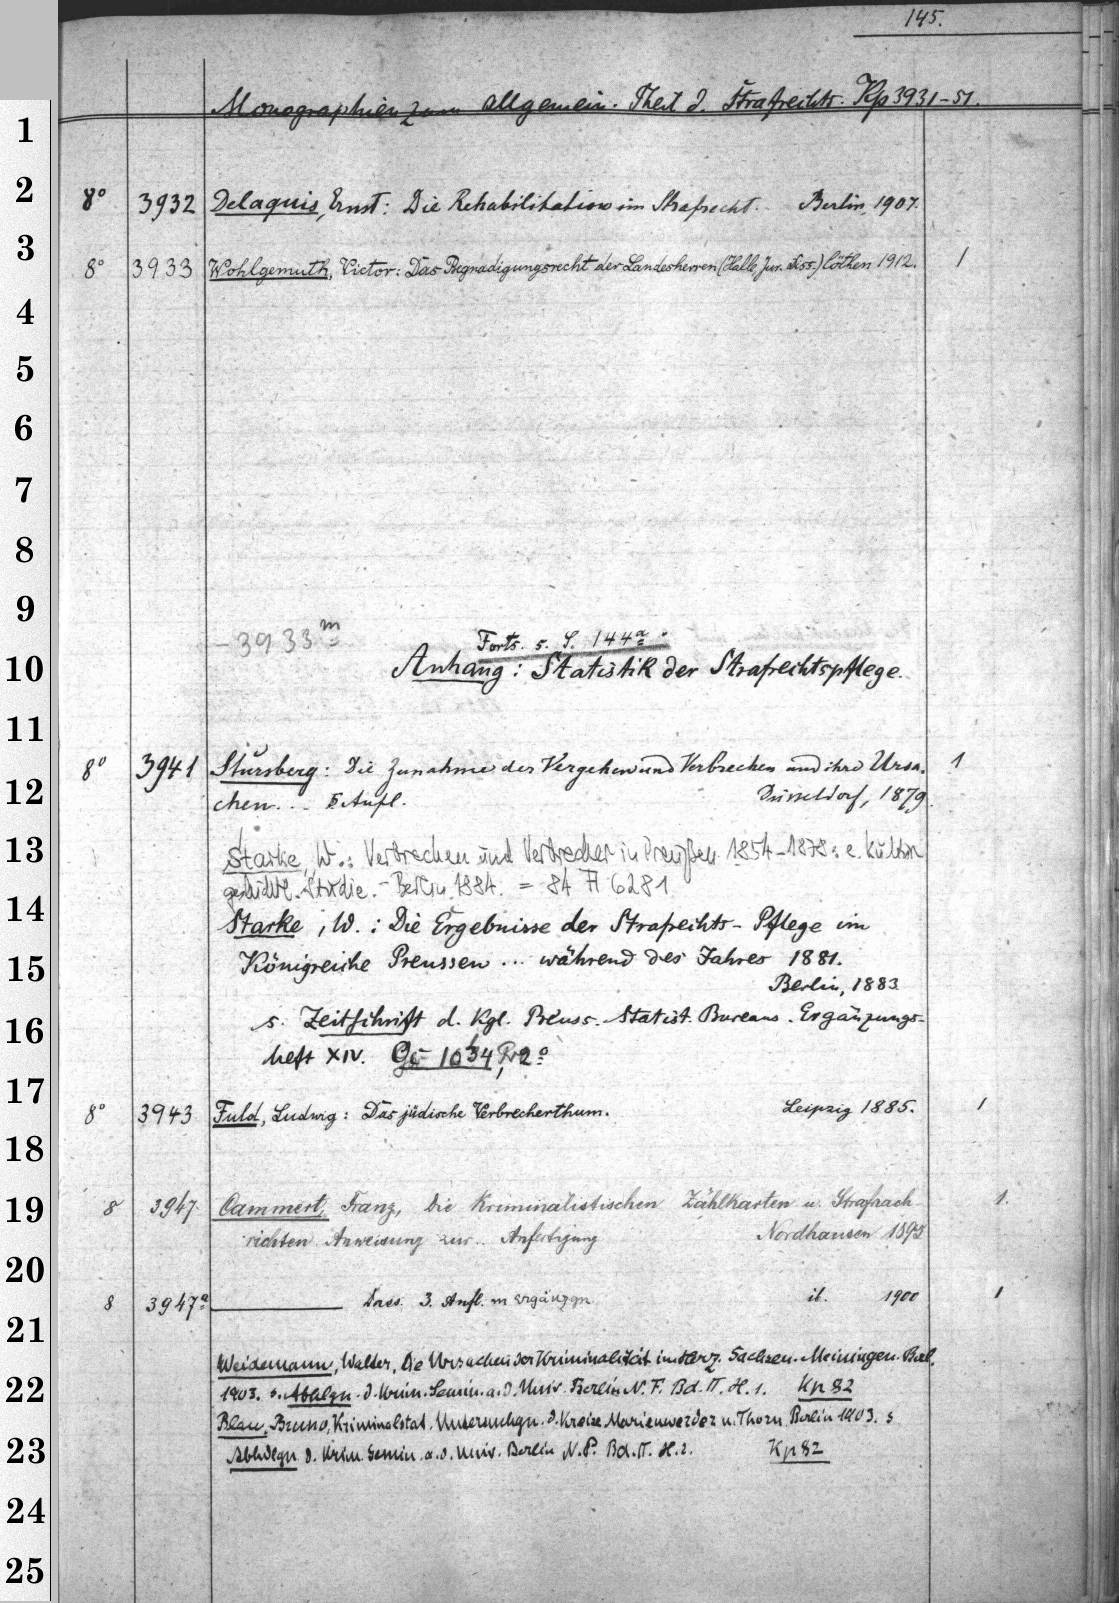 145.
Monographien zum allgemein. Theil d. Strafrechts. Kp 3931-51.
1
2
8° 3932 Delaquis, Ernst: Die Rehabilitation im Strafrecht. Berlin, 1907.
3
8° 3933 Wohlgemuth, Victor: Das Begnadigungsrecht der Landesherren (Halle, Jur. Diss.) Cöthen 1912. 1
4
5
6
7
8
9
- 3933 m
Forts. s. S. 144a.
10
Anhang: Statistik der Strafrechtspflege.
11
8° 3941 Stursberg: Die Zunahme der Vergehen und Verbrechen und ihre Ursa- 1
12
chen ... 5 Aufl. Düsseldorf, 1879.
13
Starke, W.: Verbrechen und Verbrecher in Preußen 1854-1878: e. kultur
geschichtl. Studie. - Berlin 1884. = 84 A 6281
14
Starke, W.: Die Ergebnisse der Strafrechts-Pflege im
15
Königreiche Preussen ... während des Jahres 1881.
Berlin, 1883
16
s. Zeitschrift d. Kgl. Preuss. Statist. Bureaus. Ergänzungs-
heft XIV. 1034, 2°
17
8° 3943 Fuld, Ludwig: Das jüdische Verbrecherthum. Leipzig 1885. 1
18
19
8 3947 Cammert, Franz, Die Kriminalistischen Zählkarten u. Strafnach- 1.
richten Anweisung zur .. Anfertigung Nordhausen 1895
20
8 3947a Dass. 3. Aufl. m ergänzgn. ib. 1900 1
21
Weidemann, Walter, Die Ursachen der Kriminalität im Herz. Sachsen-Meiningen. Berl.
22
1903. s. Abhlgn. d. Krim. Semin. a. d. Univ. Berlin N. F. Bd. II. H. 1. Kp 82
Blau, Bruno, Kriminalstat. Untersuchgn. d. Kreise Marienwerder u. Thorn. Berlin 1903. s
23
Abhdlgn d. Krim. Semin. a. d. Univ. Berlin N. F. Bd. II. H. 2. Kp 82
24
25